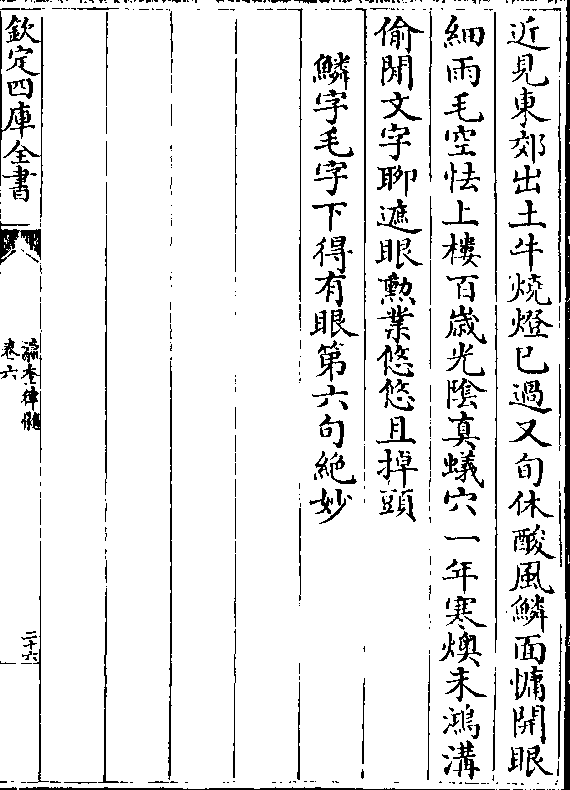 近見東郊出土牛燒燈已過又旬休酸風鱗面慵開眼
細雨毛空怯上樓百歳光隂真蟻穴一年寒燠未鴻溝
偷閒文字聊遮眼勲業悠悠且掉頭
鱗字毛字下得有眼第六句絶妙
欽定四庫全書
瀛奎律髓
卷六
二十六